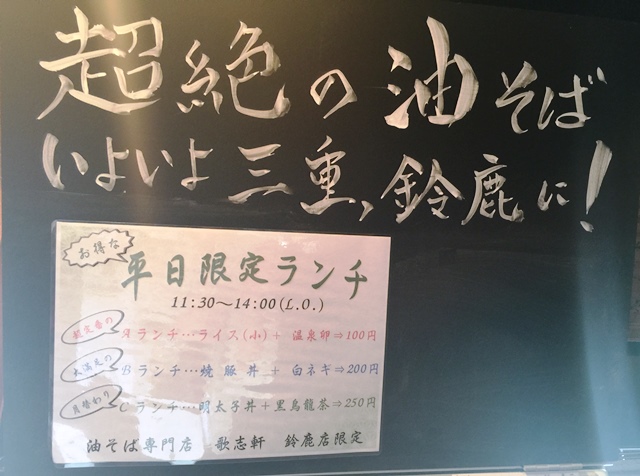 超絶の油そば
いよいよ三重、鈴鹿に！
お得な
平日限定ランチ
11:30～14:00(L.O.)
超定番の Aランチ…ライス(小)＋ 温泉卵⇒100円
大満足の Bランチ…焼豚丼 ＋ 白ネギ⇒200円
月替わり Cランチ…明太子丼＋黒烏龍茶⇒250円
油そば専門店 歌志軒 鈴鹿店限定